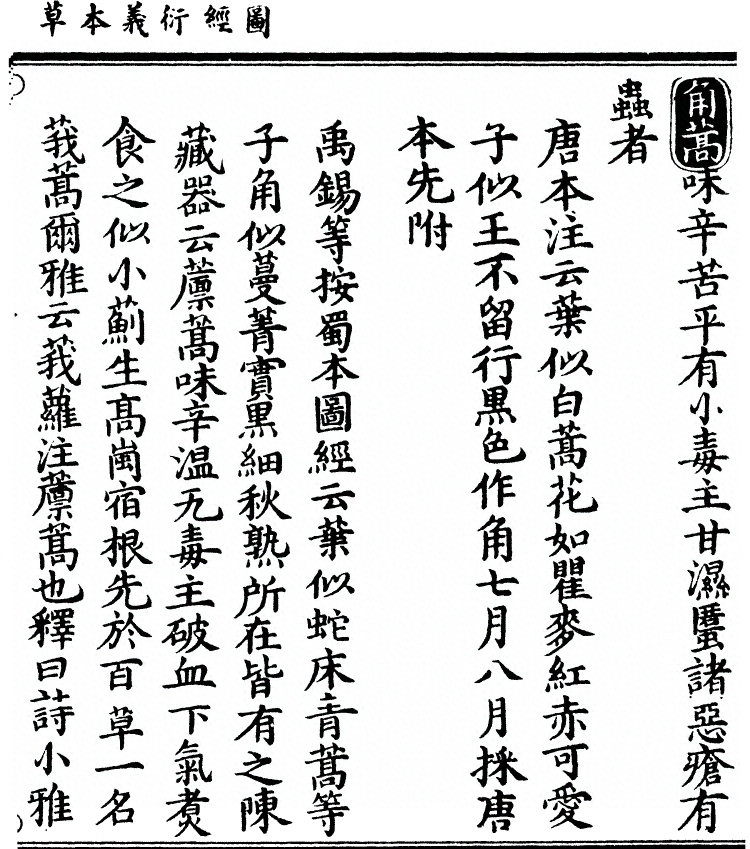 圖經衍義本草
角蒿味辛苦平有小毒主甘濕䘌諸惡瘡有
蟲者
唐本注云葉似白蒿花如瞿麥紅赤可愛
子似王不留行黑色作角七月八月採唐
本先附
禹錫等按蜀本圖經云葉似蛇床青蒿等
子角似蔓菁實黑細秋熟所在皆有之陳
藏器云藨蒿味辛温无毒主破血下氣煑
食之似小薊生高崗宿根先於百草一名
莪蒿爾雅云莪蘿注藨蒿也釋曰詩小雅